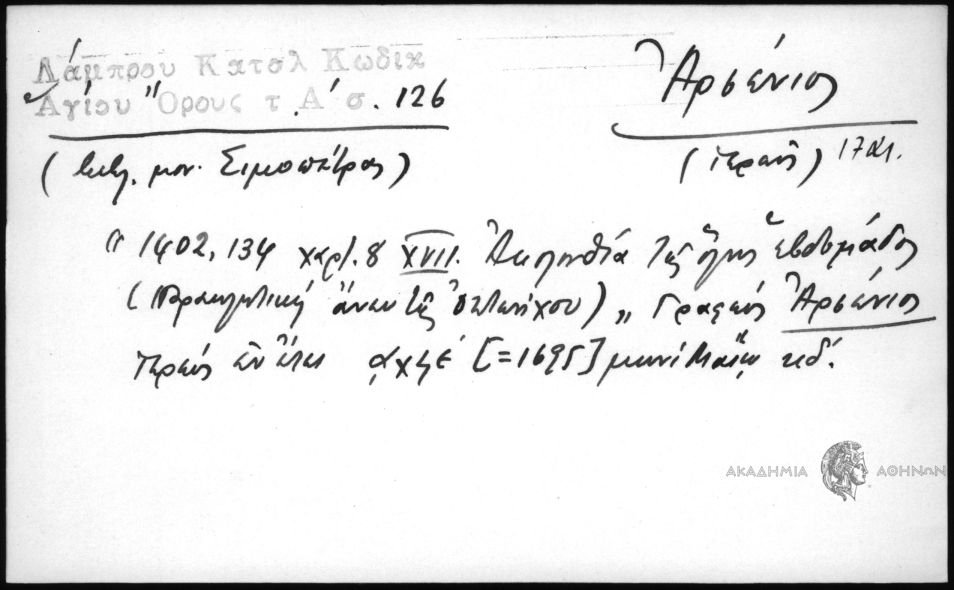 Λάμπρου Κατολ Κωδικ
Ἁγίου Ὄρους τ Α΄ σ. 126
Ἀρσένιος
(βιβλ. μον. Σιμοπέτρας)
(ἱερεύς) 17 αι.
"1402, 134 χαρτ. 8 XVII. Ἀκολουθία τῆς ὅλης ἑβδομάδος
(Παρακλητικὴ ἄνευ τῆς ὀκτωήχου) „ Γραφεύς Ἀρσένιος
ἱερεύς ἐν ἔτει ͵αχϟε΄ [=1695] μηνὶ Μαΐῳ κδ΄.
ΑΚΑΔΗΜΙΑ ΑΘΗΝΩΝ